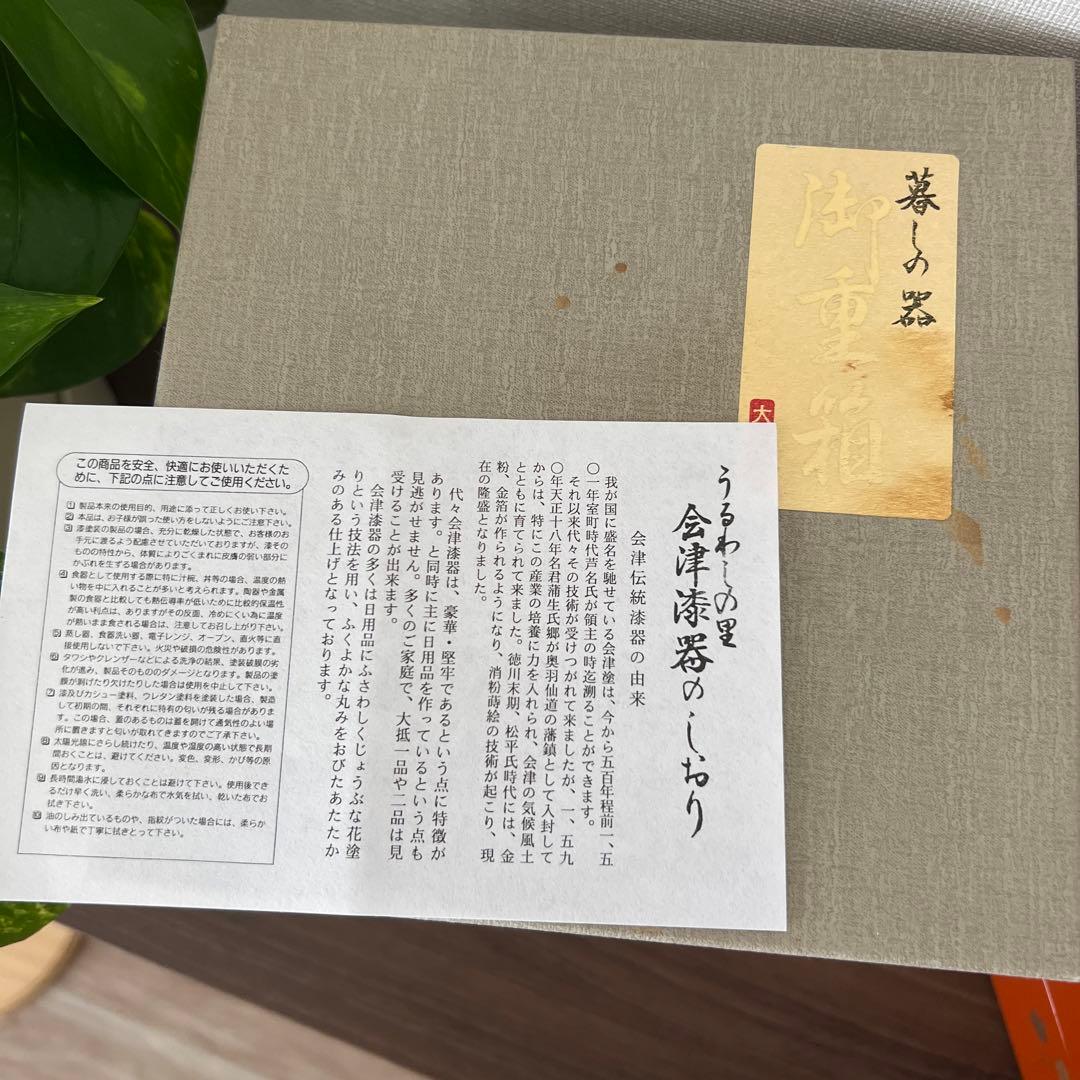 暮しの器
御重箱
大
うるわしの里
会津漆器のしおり
会津伝統漆器の由来
我が国に盛名を馳せている会津塗は、今から五百年程前一、五
〇一年室町時代芦名氏が領主の時迄溯ることができます。
それ以来代々その技術が受けつがれて来ましたが、一、五九
〇年天正十八年名君蒲生氏郷が奥羽仙道の藩鎮として入封して
からは、特にこの産業の培養に力を入れられ、会津の気候風土
とともに育てられて来ました。徳川末期、松平氏時代には、金
粉、金箔が作られるようになり、消粉蒔絵の技術が起こり、現
在の隆盛となりました。
代々会津漆器は、豪華・堅牢であるという点に特徴が
あります。と同時に主に日用品を作っているという点も
見逃がせません。多くのご家庭で、大抵一品や二品は見
受けることが出来ます。
会津漆器の多くは日用品にふさわしくじょうぶな花塗
りという技法を用い、ふくよかな丸みをおびたあたたか
みのある仕上げとなっております。
この商品を安全、快適にお使いいただくた
めに、下記の点に注意してご使用ください。
1 製品本来の使用目的、用途に添って正しくお使い下さい。
2 本品は、お子様が誤った使い方をしないようにご注意下さい。
3 漆塗装の製品の場合、充分に乾燥した状態で、お客様のお
手元に渡るよう配慮させていただいておりますが、漆その
ものの特性から、体質によりごくまれに皮膚の弱い部分に
かぶれを生ずる場合があります。
4 食器として使用する際に特に汁椀、丼等の場合、温度の熱
い物を中に入れることが多いと考えられます。陶器や金属
製の食器と比較しても熱伝導率が低いために比較的保温性
が高い利点は、ありますがその反面、冷めにくい為に温度
が熱いまま食される場合は、注意してお召し上がり下さい。
5 蒸し器、食器洗い器、電子レンジ、オーブン、直火等に直
接使用しないで下さい。火災や破損の危険性があります。
6 タワシやクレンザーなどによる洗浄の結果、塗装破膜の劣
化が進み、製品そのもののダメージとなります。製品の塗
膜が剥げたり欠けたりした場合は使用を中止して下さい。
7 漆及びカシュー塗料、ウレタン塗料を塗装した場合、製造
して初期の間、それぞれに特有の匂いが残る場合がありま
す。この場合、蓋のあるものは蓋を開けて通気性のよい場
所に置きますと匂いが取れてきますのでご了承下さい。
8 太陽光線にさらし続けたり、温度や湿度の高い状態で長期
間おくことは、避けてください。変色、変形、かび等の原
因となります。
9 長時間湯水に浸しておくことは避けて下さい。使用後でき
るだけ早く洗い、柔らかな布で水気を拭い、乾いた布でお
拭き下さい。
10 油のしみ出ているものや、指紋がついた場合には、柔らか
い布や紙で丁寧に拭きとって下さい。